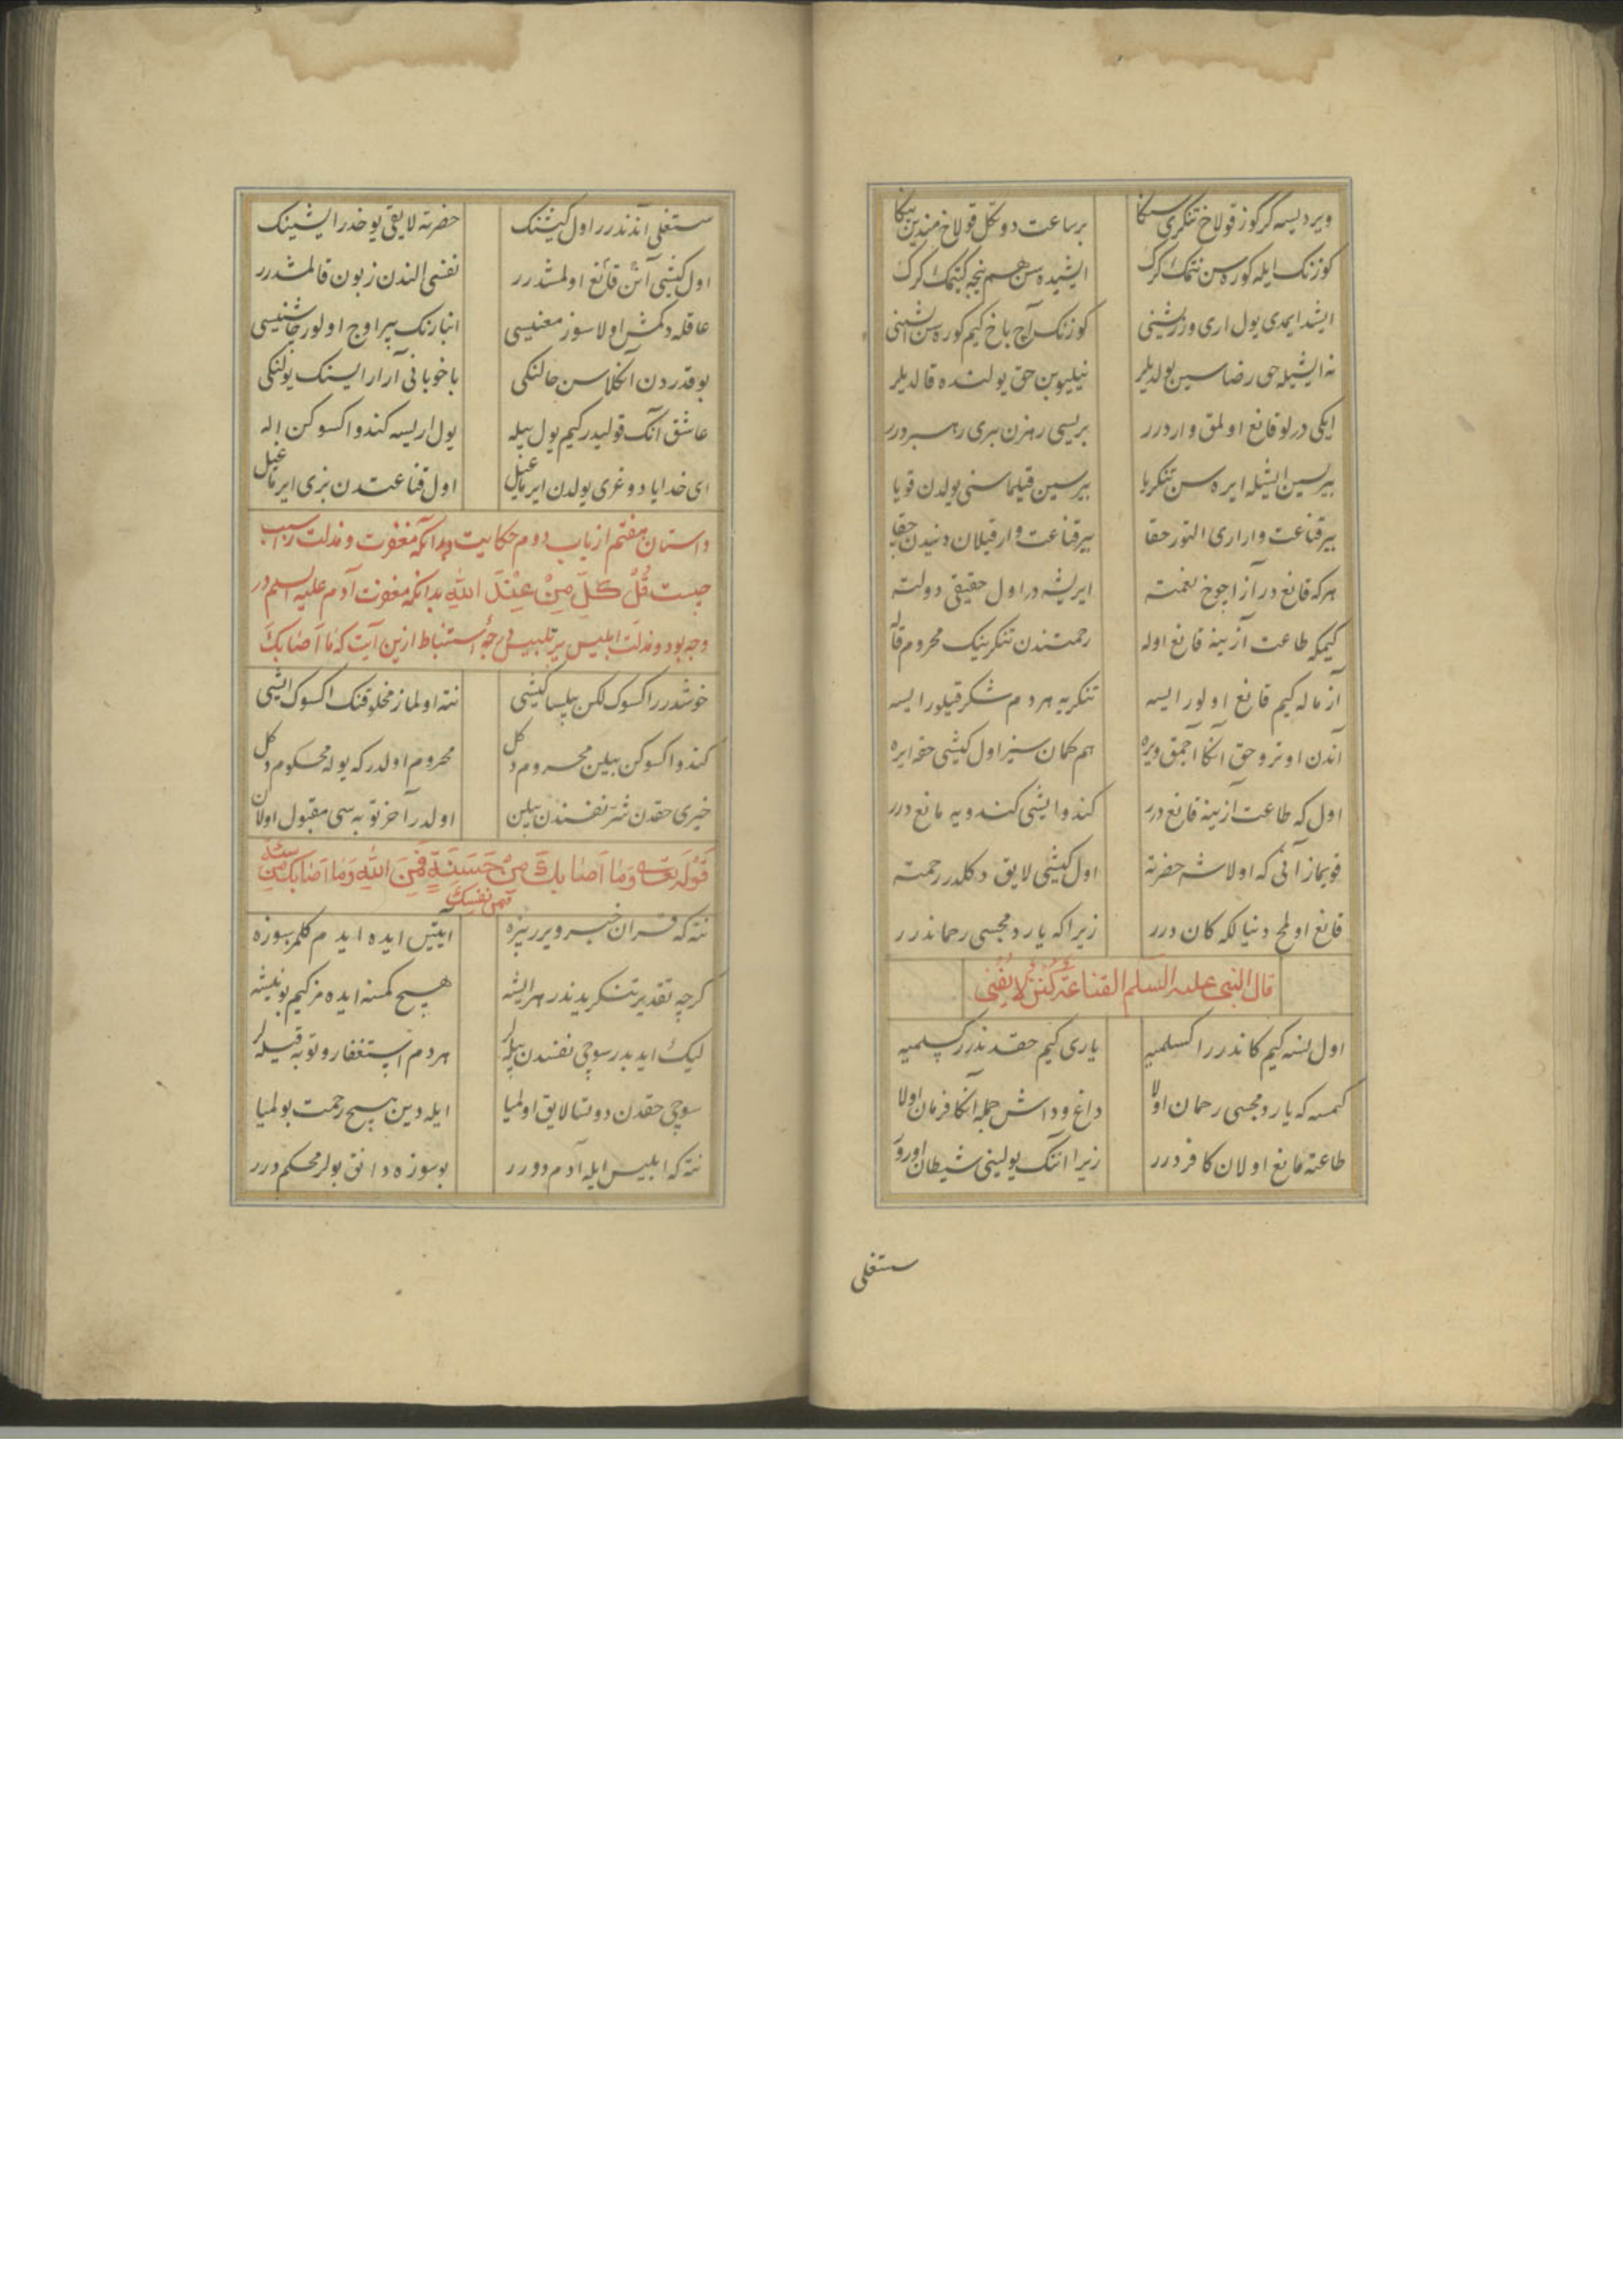 ویردیسه کر کوز قولاخ تنکری سکا برساعت دوتکل قولاخ مندین یکا
کوزنک ایله کوره سن نتمک کرک ایشیده سن هم نیجه کیتمک کرک
ایشد ایمدی یول اری ورزشینی کوزنک آچ باخ کیم کوره سن ایشینی
نه ایشیله حق رضاسین بولدیلر نیلیوبن حق یولنده قالدیلر
ایکی درلو قانع اولمق واردرر بریسی رهزن بری رهبر درر
بیرسین ایشیله ایره سن تنکریا بیرسین قیلماسنی یولدن قویا
بیرقناعت واراری التور حقا بیرقناعت وار قیلان دنیدن چقا
هرکه قانع در آز اجوخ نعمته ایریشه در اول حقیقی دولته
کیمکه طاعت آزینه قانع اوله رحمتندن تنکرینک محروم قاله
آز ماله کیم قانع اولور ایسه تنکریه هردم شکر قیلور ایسه
آندن اوترو حق انکا اجمق ویره هم کمان سیز اول کیشی حقه ایره
اول که طاعت آزینه قانع درر کندو ایشی کندویه مانع درر
قویماز آنی که اولاشه حضرته اول کیشی لایق دکلدر رحمته
قانع اولمخ دنیالکه کان درر زیراکه یاردمجسی رحماندرر
قال النبی علیه السلم القناعة کنز لا یفنی
اول نسه کیم کاندرر اکسلمیه یاری کیم حقدندرر پسلمیه
کمسه که یاردمجسی رحمان اولا داغ و داش جمله آنکا فرمان اولا
طاعته مانع اولان کافر درر زیرا اننک یولینی شیطان اورر
ستغلی
ستغلی آندندرر اول کیشنک حضرته لایقی یوخدر ایشینک
اول کیشی آش قانع اولمشدرر نفسی الندن زبون قالمشدرر
عاقله دکمش اولا سوز معنیسی انبارنک بیر اوج اولور چاشنیسی
بو قدردن آنکلاسن حالنکی باخوبانی آرار ایسنک یولنکی
عاشق آنک قولیدر کیم یول بیله یول اریسه کندو اکسوکن اله
ای خدایا دوغری یولدن ایرماغیل اول قناعتدن بزی ایرماغیل
داستان هفتم از باب دوم حکایت بدانکه مغفرت و مذلت را سبب
چیست قُلْ كُلٌّ مِنْ عِنْدَ اللهِ بدانکه مغفرت آدم علیه السلم در
وجه بود و مذلت ابلیس بر تلبیس استنباط ازین آیت که ما اَصَابَكَ
خوشدرر اکسوک لکن بیلسا کیشی نته اولماز مخلوقنک اکسوک ایشی
کندو اکسوکن بیلین محروم دکل محروم اولدر که یوله محکوم دکل
خیری حقدن شر نفسندن بیلین اولدر آخر توبه سی مقبول اولان
قَوْلُهُ تعالی وَمَا اَصَابَكَ مِنْ حَسَنَةٍ فَمِنَ اللهِ وَمَا اَصَابَكَ مِنْ سَيِّئَةٍ
فمن نفسِكَ
نته که قران خبر ویرر بیزه آیتیس ایده ایدم کلمر سوزه
کرچه تقدیر تنکریدندر هر ایشه هیچ کمسه ایده مز کیم بو نیشه
لیک ایدیدر سوچی نفسدن بیله هردم استغفار و توبه قیله
سوچی حقدن دوتسا لایق اولمیا ایله دین هیچ رحمت بولمیا
نته که ابلیس ایله آدم دورر بو سوزه دانق بولر محکم درر